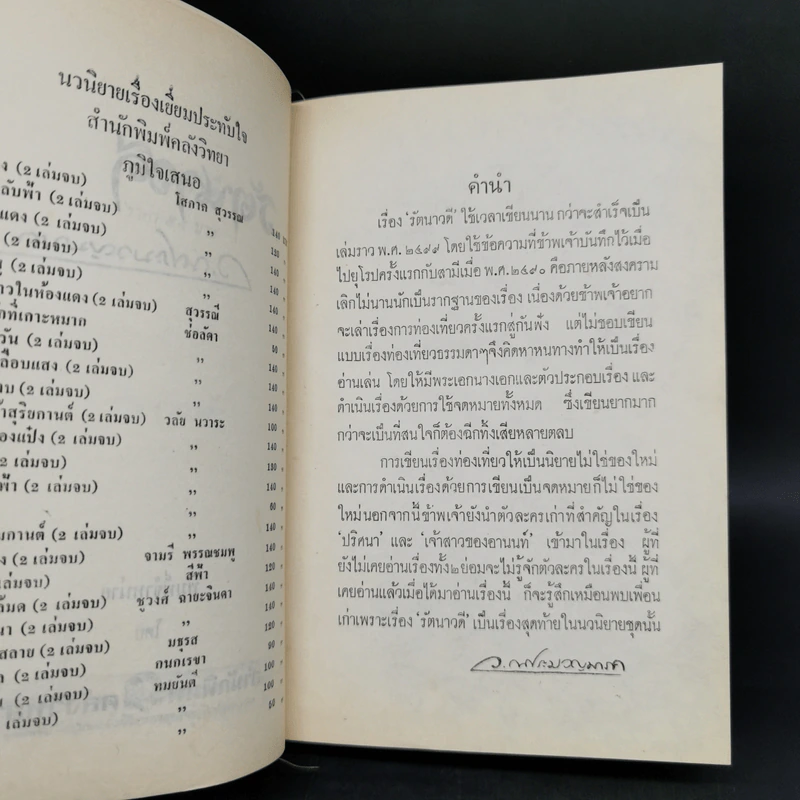 นวนิยายเรื่องเยี่ยมประทับใจ
สำนักพิมพ์คลังวิทยา
ภูมิใจเสนอ
ง (2 เล่มจบ) โสภาค สุวรรณ
ลับฟ้า (2 เล่มจบ) ,, 140
แดง (2 เล่มจบ) ,, 120
(2 เล่มจบ) ,, 140
(2 เล่มจบ) ,, 140
าวในห้องแดง (2 เล่มจบ) สุวรรณี 140
ที่เกาะหมาก ช่อลัดา 140
วัน (2 เล่มจบ) ,, 60
ลือบแสง (2 เล่มจบ) ,, 140
าบ (2 เล่มจบ) ,, 140
าสุริยกานต์ (2 เล่มจบ) วลัย นวาระ 140
องแป้ง (2 เล่มจบ) ,, 100
(2 เล่มจบ) ,, 140
ฟ้า (2 เล่มจบ) ,, 120
,, 140
มกานต์ (2 เล่มจบ) ,, 60
ง (2 เล่มจบ) จามรี พรรณชมพู 140
(2 เล่มจบ) สีฟ้า 140
ล้มด (2 เล่มจบ) ชูวงศ์ ฉายะจินดา 120
นา (2 เล่มจบ) ,, 140
สลาย (2 เล่มจบ) มธุรส 120
ล (2 เล่มจบ) กนกเรขา 90
(2 เล่มจบ) ทมยันตี 100
(2 เล่มจบ) ,, 100
,, 60
คำนำ
เรื่อง 'รัตนาวดี' ใช้เวลาเขียนนาน กว่าจะสำเร็จเป็น
เล่มราว พ.ศ. ๒๔๙๙ โดยใช้ข้อความที่ข้าพเจ้าบันทึกไว้เมื่อ
ไปยุโรปครั้งแรกกับสามีเมื่อ พ.ศ. ๒๔๙๐ คือภายหลังสงคราม
เลิกไม่นานนักเป็นรากฐานของเรื่อง เนื่องด้วยข้าพเจ้าอยาก
จะเล่าเรื่องการท่องเที่ยวครั้งแรกสู่กันฟัง แต่ไม่ชอบเขียน
แบบเรื่องท่องเที่ยวธรรมดาๆจึงคิดหาหนทางทำให้เป็นเรื่อง
อ่านเล่น โดยให้มีพระเอกนางเอกและตัวประกอบเรื่อง และ
ดำเนินเรื่องด้วยการใช้จดหมายทั้งหมด ซึ่งเขียนยากมาก
กว่าจะเป็นที่สนใจก็ต้องฉีกทิ้งเสียหลายตลบ
การเขียนเรื่องท่องเที่ยวให้เป็นนิยายไม่ใช่ของใหม่
และการดำเนินเรื่องด้วยการเขียนเป็นจดหมายก็ไม่ใช่ของ
ใหม่นอกจากนี้ข้าพเจ้ายังนำตัวละครเก่าที่สำคัญในเรื่อง
'ปริศนา' และ 'เจ้าสาวของอานนท์' เข้ามาในเรื่อง ผู้ที่
ยังไม่เคยอ่านเรื่องทั้ง๒ย่อมจะไม่รู้จักตัวละครในเรื่องนี้ ผู้ที่
เคยอ่านแล้วเมื่อได้มาอ่านเรื่องนี้ ก็จะรู้สึกเหมือนพบเพื่อน
เก่าเพราะเรื่อง 'รัตนาวดี' เป็นเรื่องสุดท้ายในนวนิยายชุดนั้น